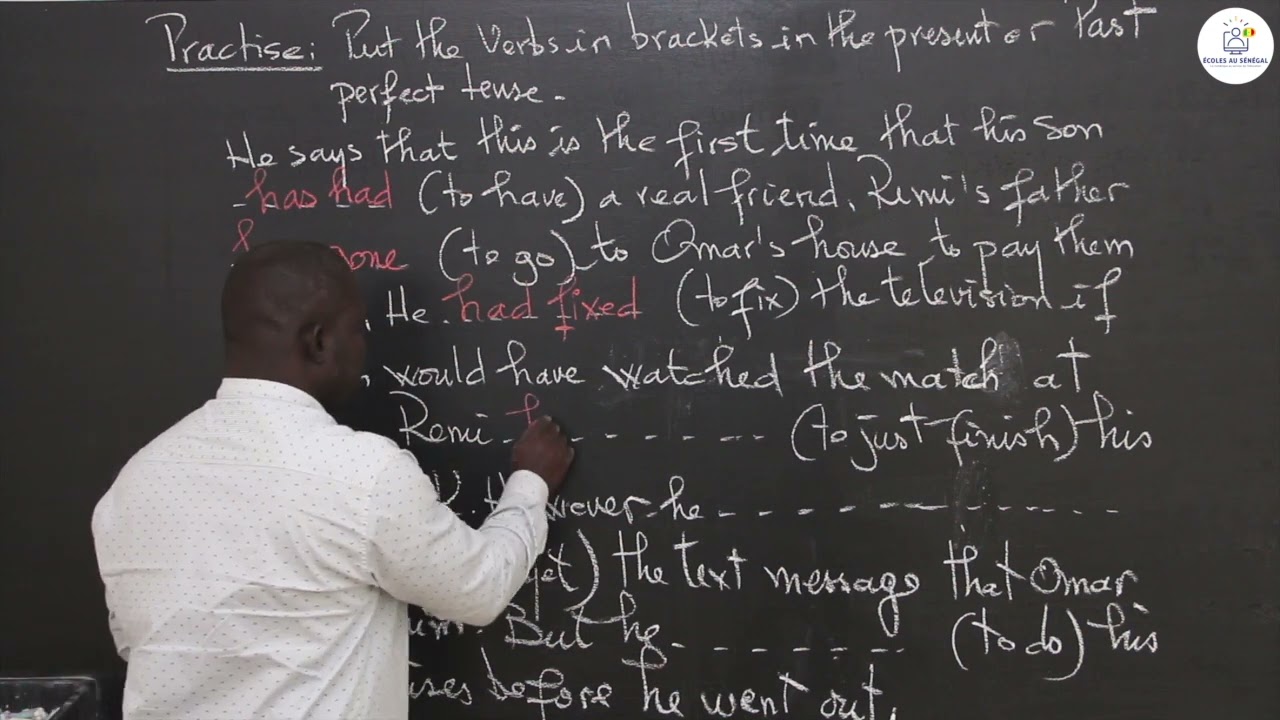 Practise: Put the verbs in brackets in the present or Past
perfect tense.
He says that this is the first time that his son
has had (to have) a real friend. Remi's father
(to go) to Omar's house to pay them
. He had fixed (to fix) the television if
would have watched the match at
Remi h - - - - - - - (to just finish) his
he - - - - - - - - - - -
the text message that Omar
But he - - - - - - - (to do) his
before he went out.
ÉCOLES AU SÉNÉGAL